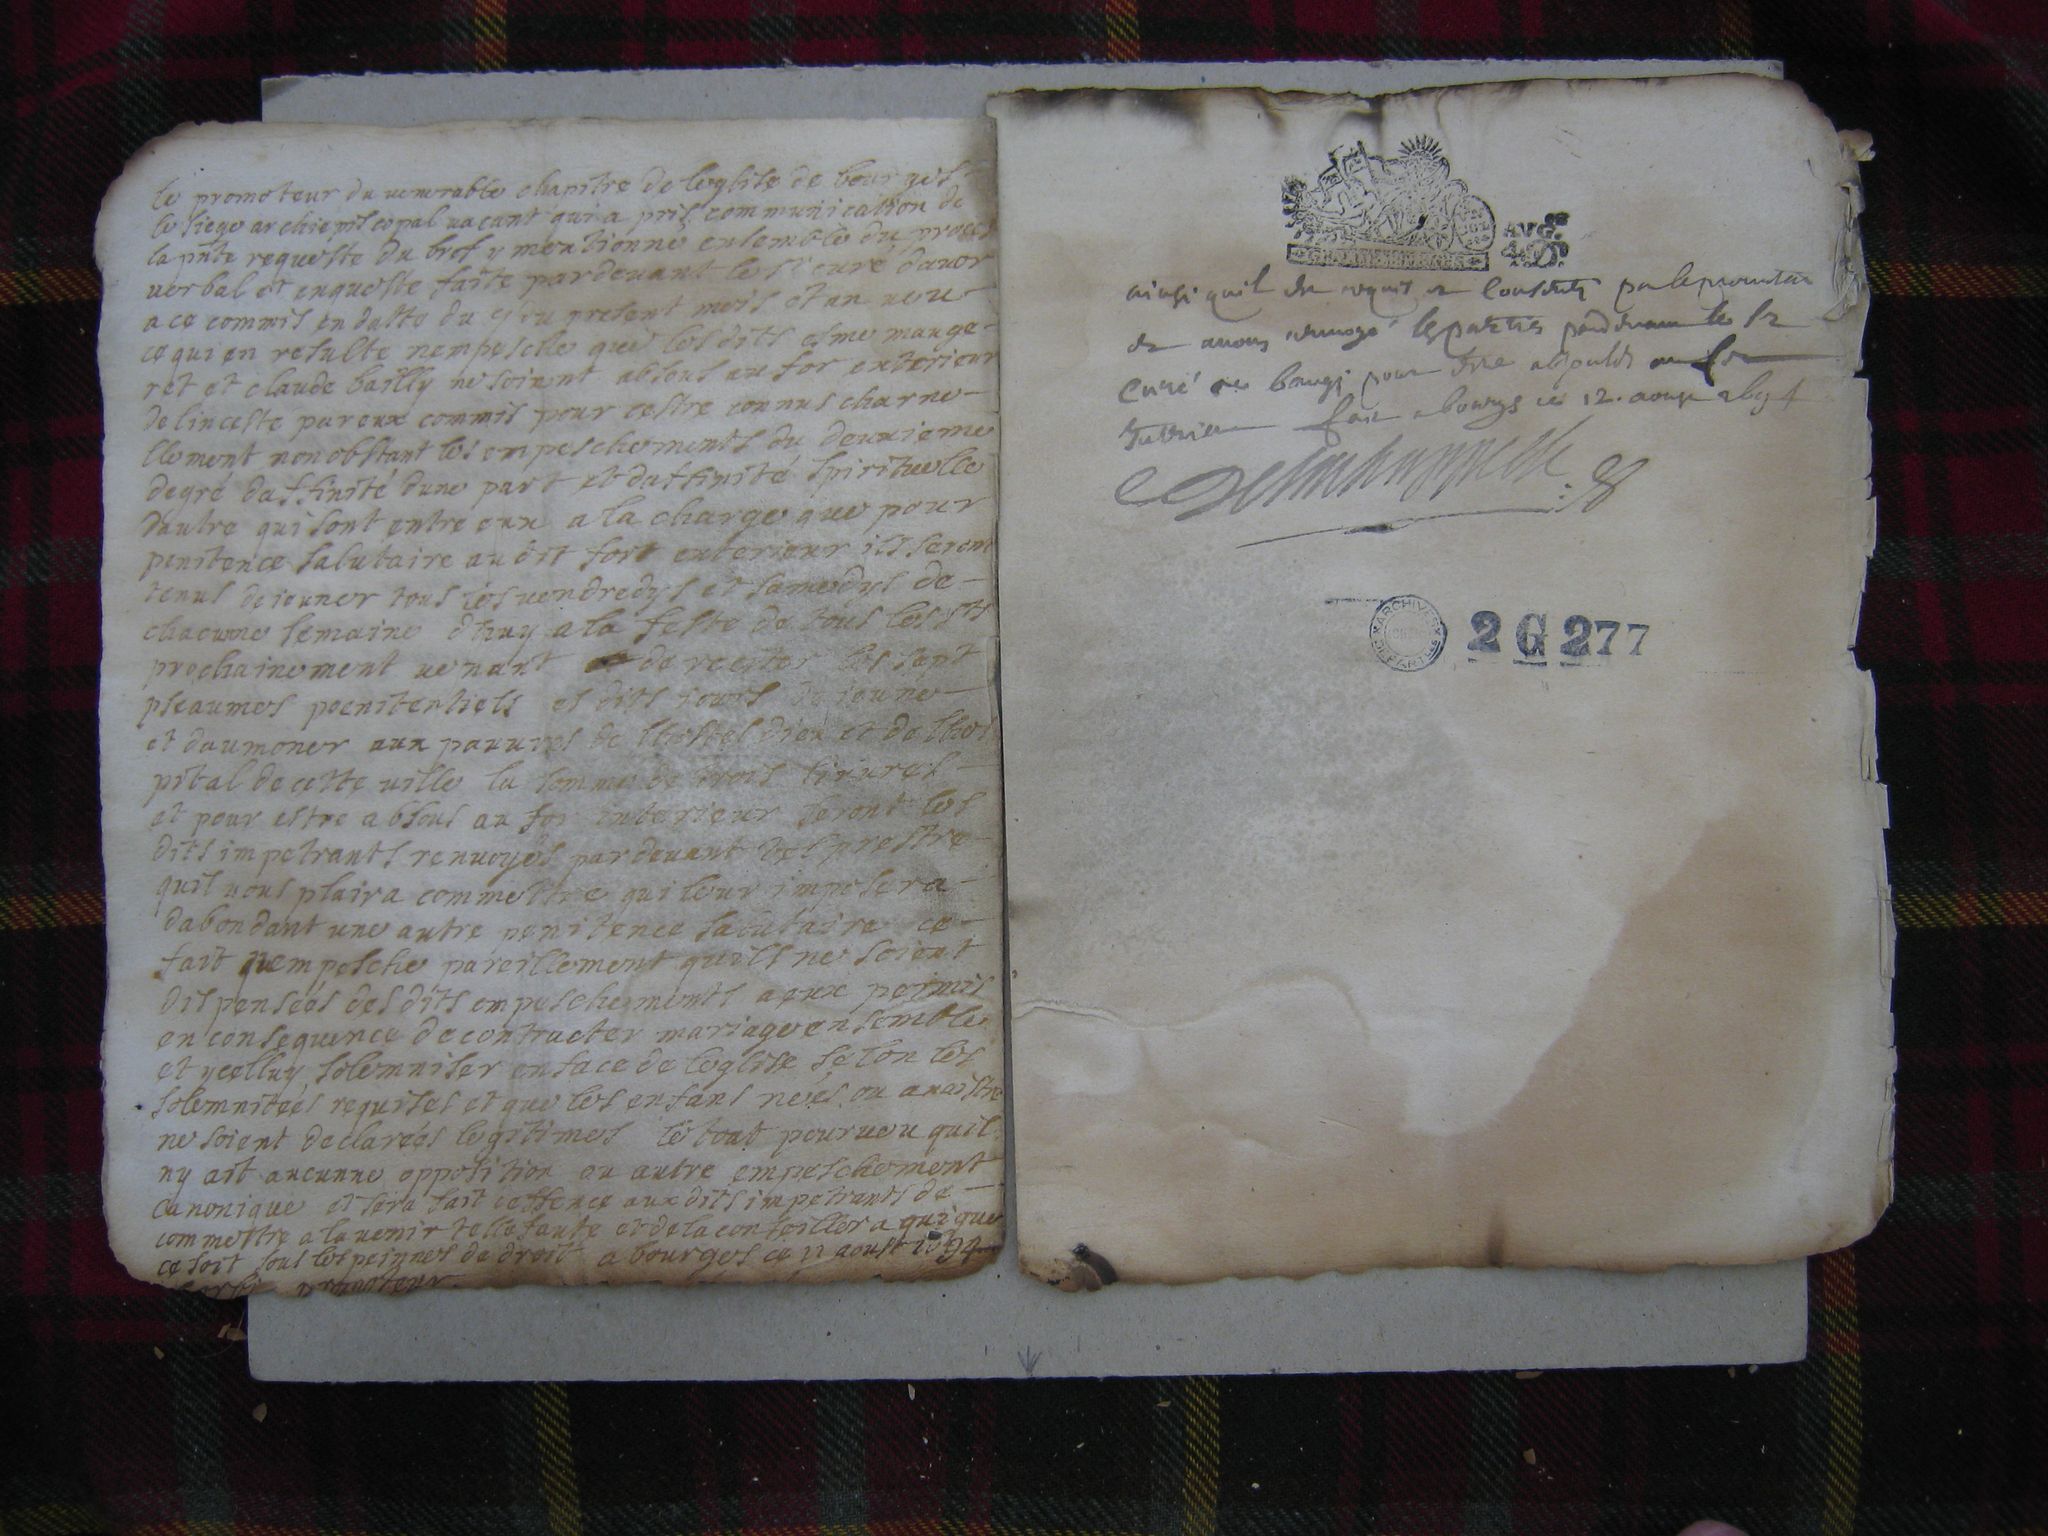 le promoteur du venerable chapitre de leglise de bourges
le siege archiepiscopal vacant qui a pris communication de
la pnte requeste du bref y mentionné ensemble du proces
verbal et enqueste faite pardevant le sieur curé davor
a ce commis en datte du 9 du present mois et an veu
ce qui en resulte nempesche que les dits esme mauge-
ret et claude bailly ne soient absous au for exterieur
de linceste par eux commis pour cestre connus charne-
llement nonobstant les empeschements du deuxieme
degré daffinité dune part et daffinité spirituelle
dautre qui sont entre eux a la charge que pour
penitence salutaire au dit fort exterieur ils seront
tenus de jeuner tous les vendredys et samedys de
chacune semaine dhuy a la feste de tous les sts
prochainement venant de reciter les sept
pseaumes poenitentiels es dits jours de jeune
et daumoner aux pauvres de lhostel dieu et de lhos
pital de cette ville la somme de trois livres
et pour estre absous au for interieur seront les
dits impetrants renvoyés pardevant tel prestre
quil vous plaira commettre qui leur imposera
dabondant une autre penitence salutaire ce
fait nempesche pareillement quils ne soient
dispensées des dits empeschements a eux permis
en consequence de contracter mariage ensemble
et ycelluy solemniser en face de leglise selon les
solemnitées requises et que les enfans neés ou a naistre
ne soient declareés legitimes le tout pourveu quil
ny ait aucunne opposition ou autre empeschement
canonique et sera fait deffence aux dits impetrants de
commettre a lavenir telle faute et de la conseiller a qui que
ce soit sous les peinnes de droit a bourges ce 11 aoust 1694
promoteur
AVG.
4 D.
ainsi quil est requis et consenti par le promoteur
et avons renvoyé les parties pardevant le sr
curé de baugi pour estre absouldz au for
Interieur fait a bourges ce 12. aoust 1694
ARCHIVES
DEPARTLES
2 G 277